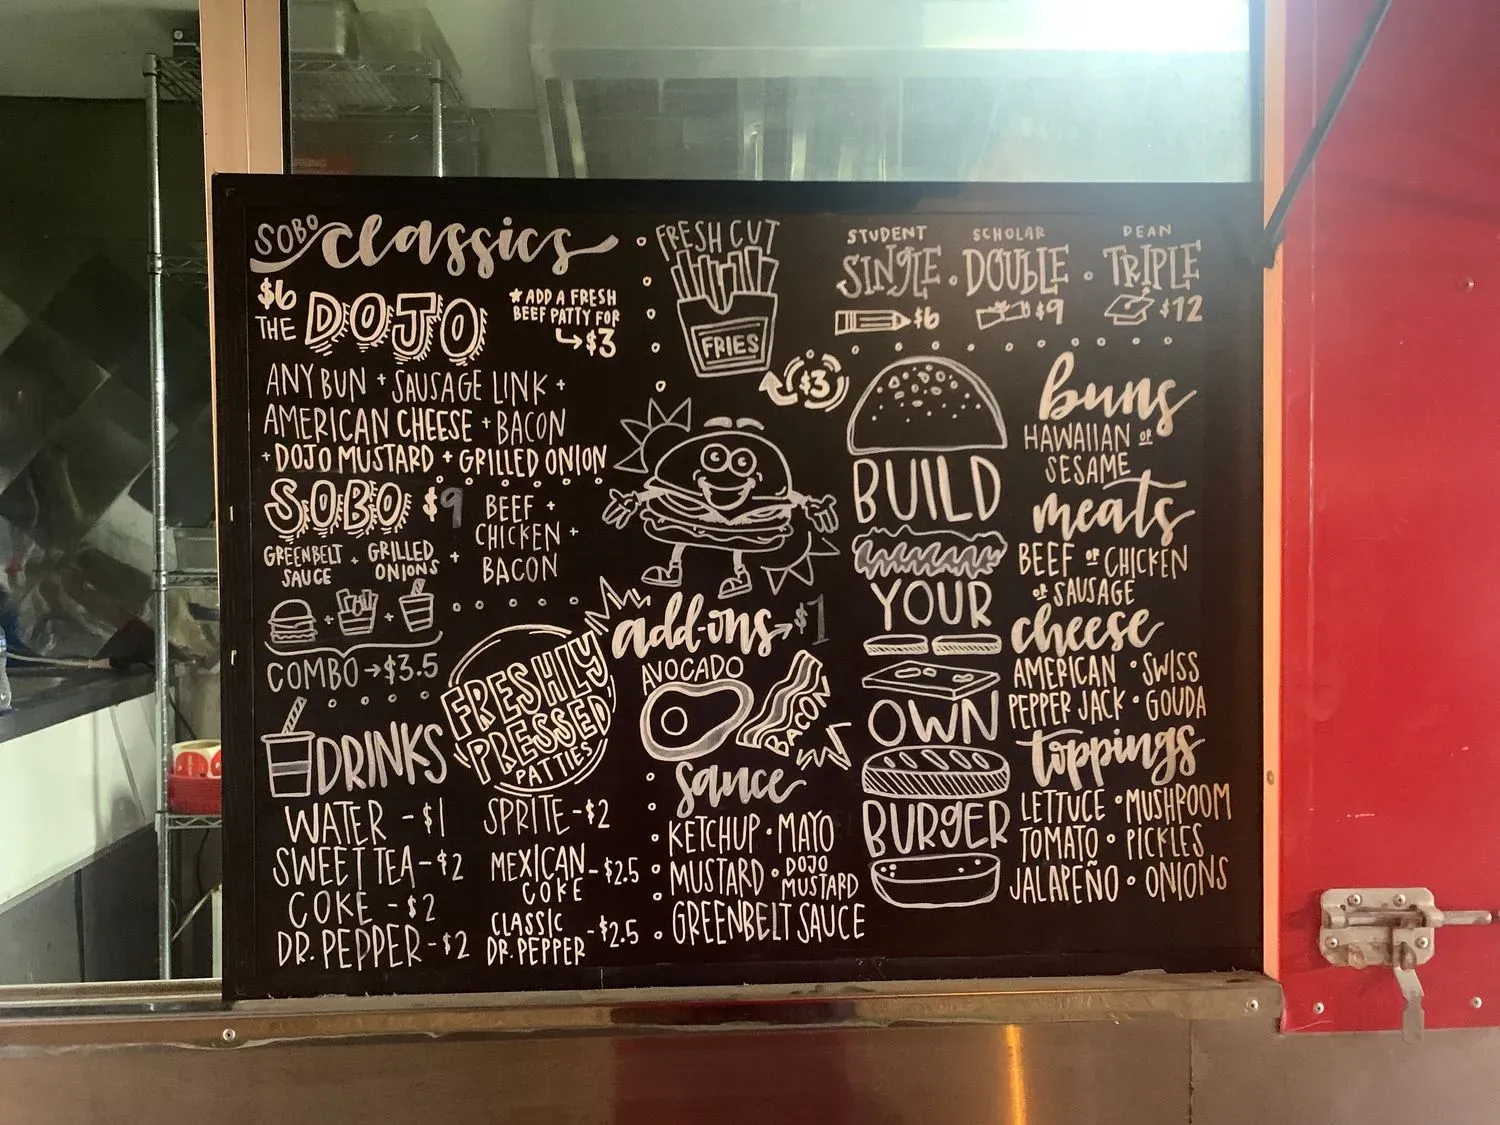 SOBO classics
$6
THE DOJO
★ADD A FRESH
BEEF PATTY FOR
$3
ANY BUN + SAUSAGE LINK +
AMERICAN CHEESE + BACON
+ DOJO MUSTARD + GRILLED ONION
SOBO $9
BEEF +
CHICKEN +
BACON
GREENBELT SAUCE + GRILLED ONIONS +
+ +
COMBO → $3.5
FRESHLY
PRESSED
PATTIES
DRINKS
WATER - $1
SWEET TEA - $2
COKE - $2
DR. PEPPER - $2
SPRITE - $2
MEXICAN COKE - $2.5
CLASSIC DR. PEPPER - $2.5
FRESH CUT
FRIES
$3
add-ons → $1
AVOCADO
BACON
sauce
KETCHUP • MAYO
MUSTARD • DOJO MUSTARD
GREENBELT SAUCE
STUDENT
SINGLE
$6
SCHOLAR
DOUBLE
$9
DEAN
TRIPLE
$12
BUILD
YOUR
OWN
BURGER
buns
HAWAIIAN or
SESAME
meats
BEEF or CHICKEN
or SAUSAGE
cheese
AMERICAN • SWISS
PEPPER JACK • GOUDA
toppings
LETTUCE • MUSHROOM
TOMATO • PICKLES
JALAPEÑO • ONIONS